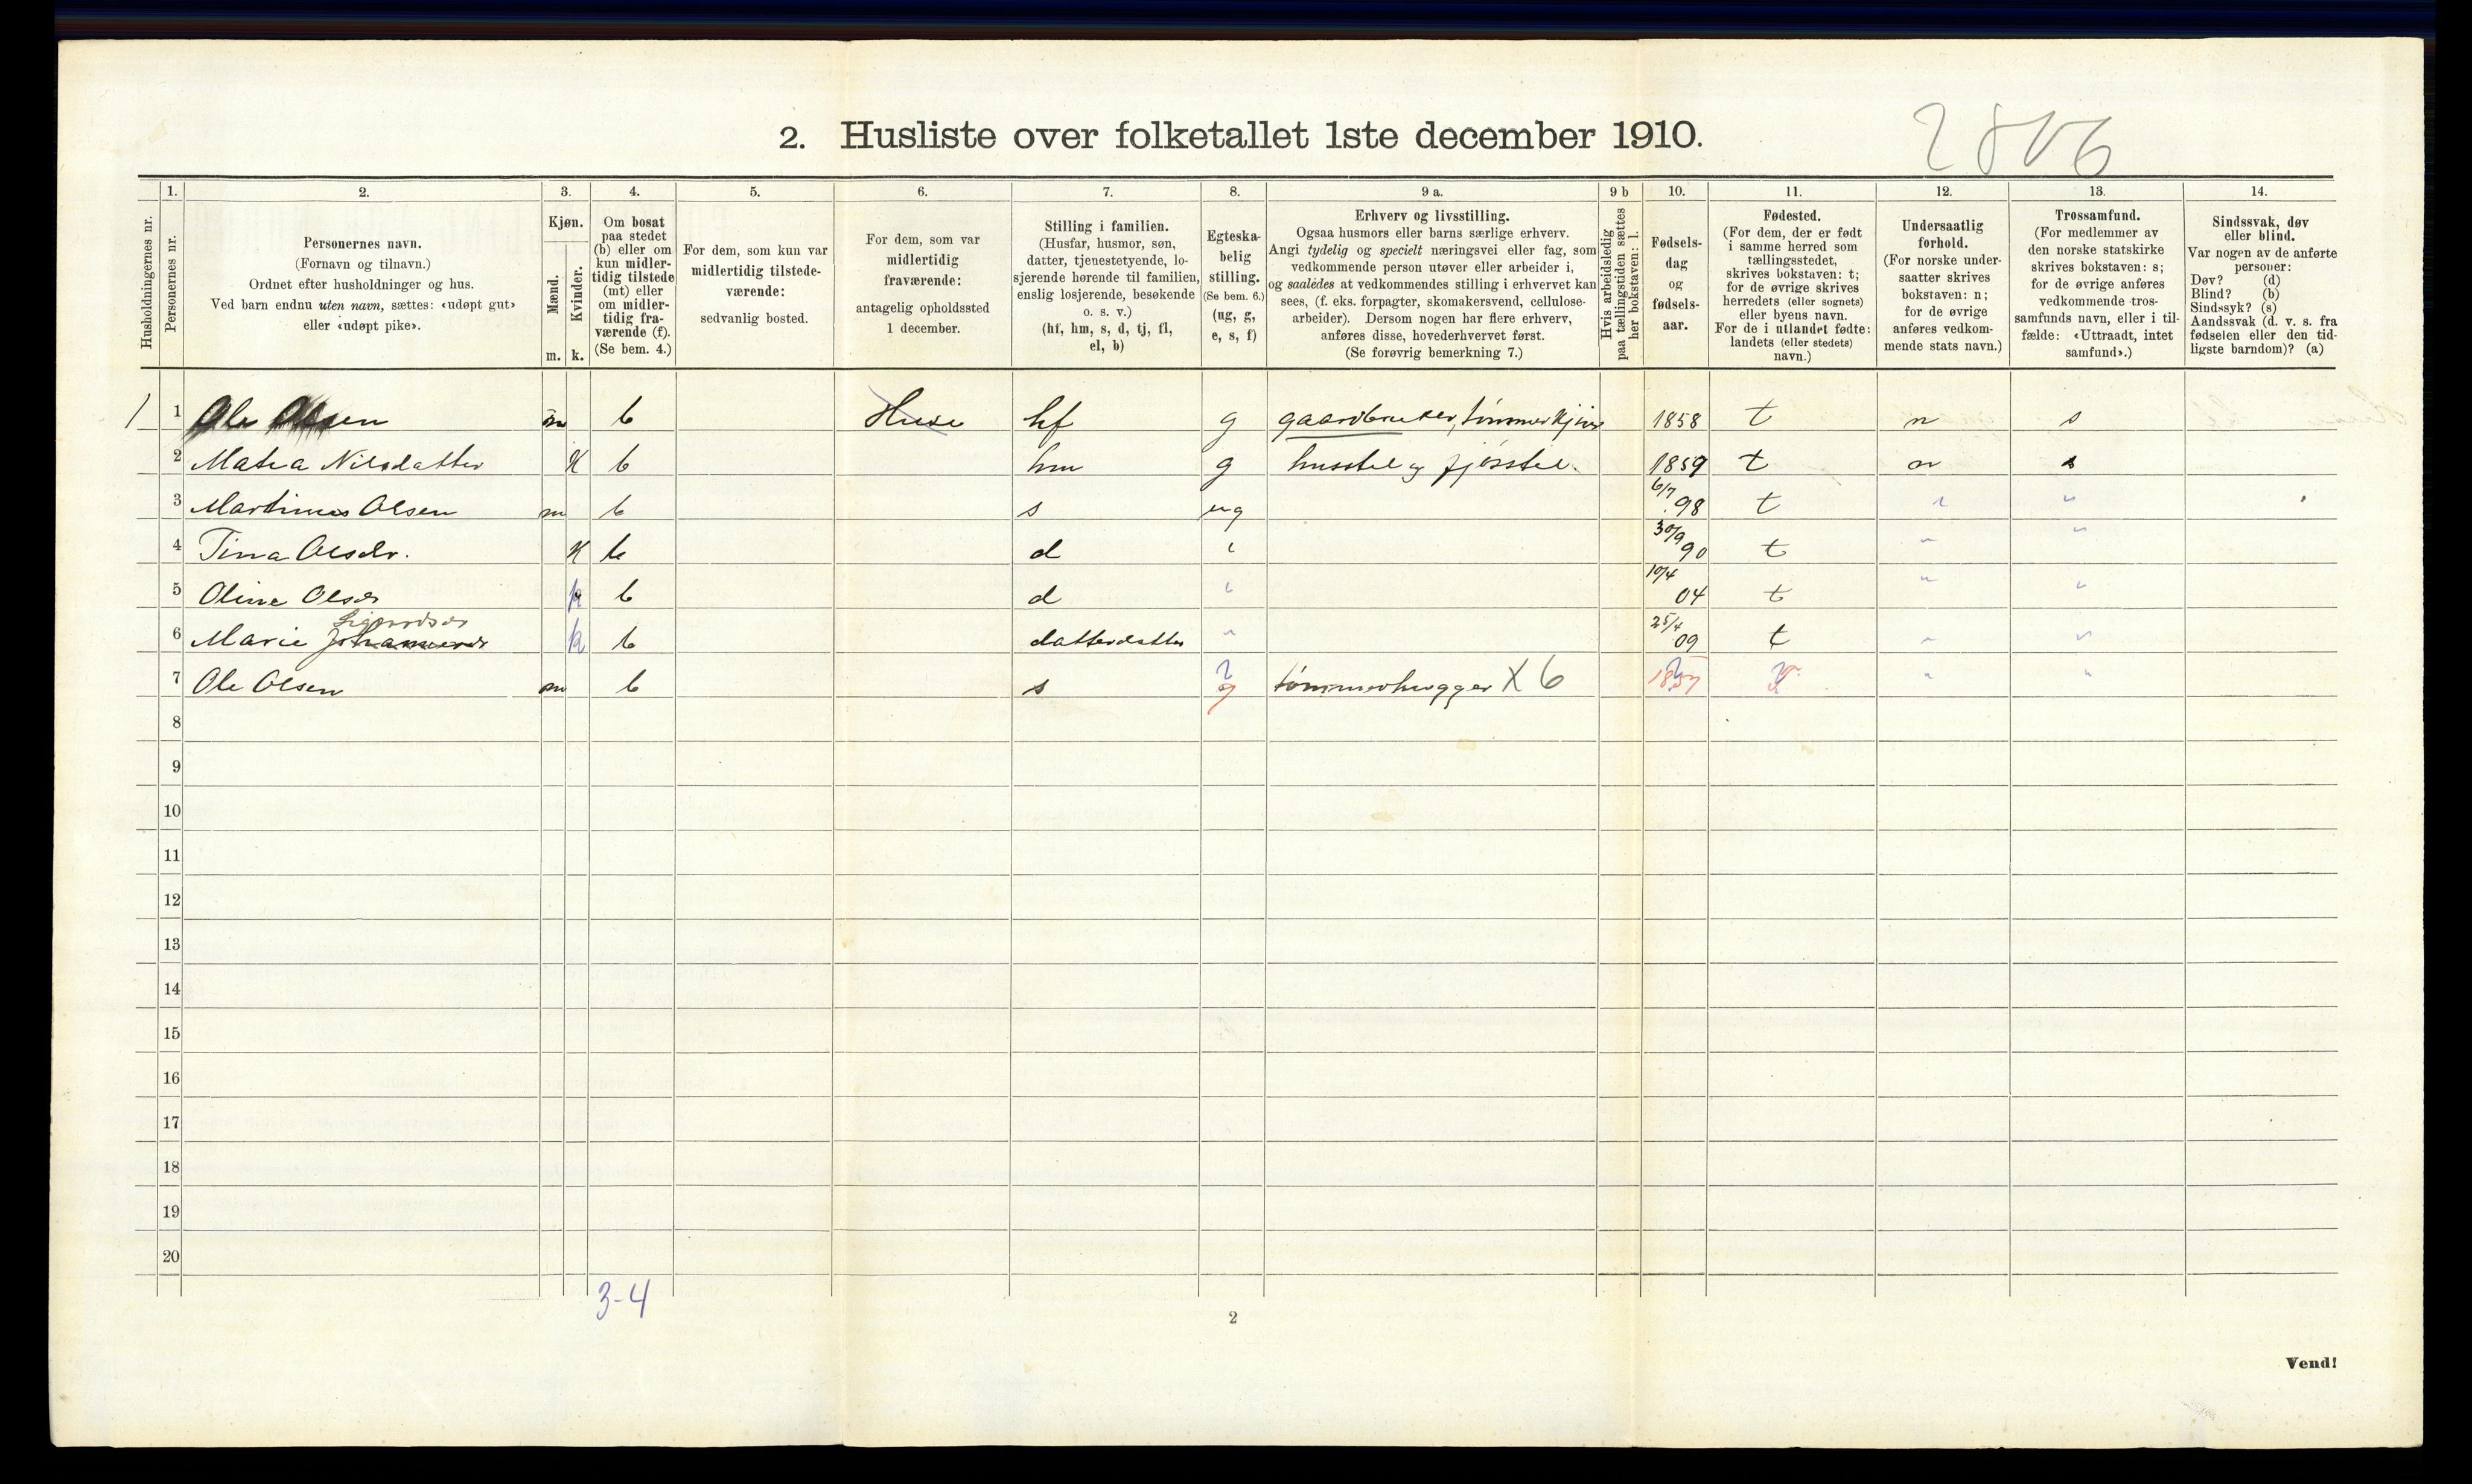 2806
2. Husliste over folketallet 1ste december 1910.
Husholdningernes nr.
1.
Personernes nr.
2.
Personernes navn.
(Fornavn og tilnavn.)
Ordnet efter husholdninger og hus.
Ved barn endnu uten navn, sættes: «udøpt gut»
eller «udøpt pike».
3.
Kjøn.
Mænd.
Kvinder.
m. k.
4.
Om bosat
paa stedet
(b) eller om
kun midler-
tidig tilstede
(mt) eller
om midler-
tidig fra-
værende (f).
(Se bem. 4.)
5.
For dem, som kun var
midlertidig tilstede-
værende:
sedvanlig bosted.
6.
For dem, som var
midlertidig
fraværende:
antagelig opholdssted
1 december.
7.
Stilling i familien.
(Husfar, husmor, søn,
datter, tjenestetyende, lo-
sjerende hørende til familien,
enslig losjerende, besøkende
o. s. v.)
(hf, hm, s, d, tj, fl,
el, b)
8.
Egteska-
belig
stilling.
(Se bem. 6.)
(ug, g,
e, s, f)
9 a.
Erhverv og livsstilling.
Ogsaa husmors eller barns særlige erhverv.
Angi tydelig og specielt næringsvei eller fag, som
vedkommende person utøver eller arbeider i,
og saaledes at vedkommendes stilling i erhvervet kan
sees, (f. eks. forpagter, skomakersvend, cellulose-
arbeider). Dersom nogen har flere erhverv,
anføres disse, hovederhvervet først.
(Se forøvrig bemerkning 7.)
9 b
Hvis arbeidsledig
paa tællingstiden sættes
her bokstaven: l.
10.
Fødsels-
dag
og
fødsels-
aar.
11.
Fødested.
(For dem, der er født
i samme herred som
tællingsstedet,
skrives bokstaven: t;
for de øvrige skrives
herredets (eller sognets)
eller byens navn.
For de i utlandet fødte:
landets (eller stedets)
navn.)
12.
Undersaatlig
forhold.
(For norske under-
saatter skrives
bokstaven: n;
for de øvrige
anføres vedkom-
mende stats navn.)
13.
Trossamfund.
(For medlemmer av
den norske statskirke
skrives bokstaven: s;
for de øvrige anføres
vedkommende tros-
samfunds navn, eller i til-
fælde: «Uttraadt, intet
samfund».)
14.
Sindssvak, døv
eller blind.
Var nogen av de anførte
personer:
Døv? (d)
Blind? (b)
Sindssyk? (s)
Aandssvak (d. v. s. fra
fødselen eller den tid-
ligste barndom)? (a)
1 1 Ole Olsen m b Huse hf g gaardbruker, tømmerkjører 1858 t n s
2 Matea Nilsdatter K b hm g husstel og fjøsstel. 1859 t n s
3 Martinus Olsen m b s ug 6/7 98 t " "
4 Tina Olsdr. K b d " 30/9 90 t " "
5 Oline Olsdr k b d " 10/4 04 t " "
Sigurdsdr
6 Marie k b datterdatter " 25/4 09 t " "
7 Ole Olsen m b s ? g tømmerhugger X 6 1857 " "
8
9
10
11
12
13
14
15
16
17
18
19
20
3-4
2
Vend!